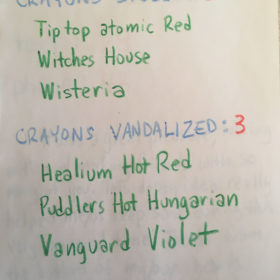 Tip top atomic Red
Witches House
Wisteria
CRAYONS VANDALIZED: 3
Healium Hot Red
Puddlers Hot Hungarian
Vanguard Violet